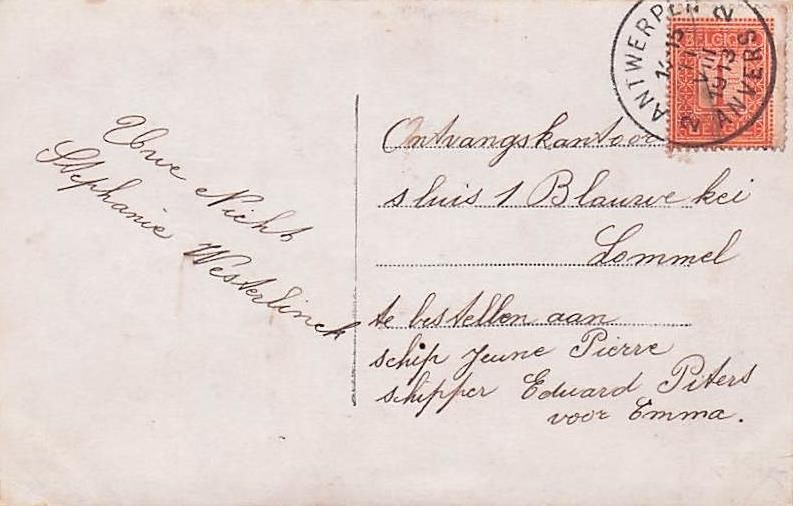 Uwe Nicht
Stephanie Westerlinck
Ontvangskantoor
sluis 1 Blauwe kei
Lommel
te bestellen aan
schip Jeune Pierre
schipper Eduard Piters
voor Emma.
ANTWERPEN 2
VIII
1913
2 ANVERS
BELGIQUE
1